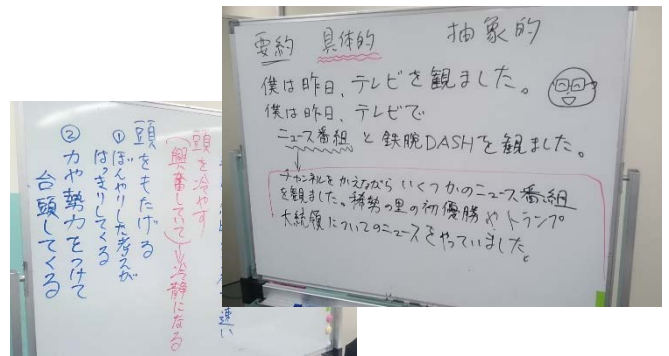 要約 具体的 抽象的
僕は昨日、テレビを観ました。
僕は昨日、テレビで
ニュース番組 と 鉄腕DASHを観ました。
チャンネルをかえながら いくつかのニュース番組
を観ました。稀勢の里の初優勝やトランプ
大統領についてのニュースをやっていました。
頭を冷やす!
(興奮していて)→冷静になる
頭をもたげる
①ぼんやりした考えが
はっきりしてくる
②力や勢力をつけて
台頭してくる
速い